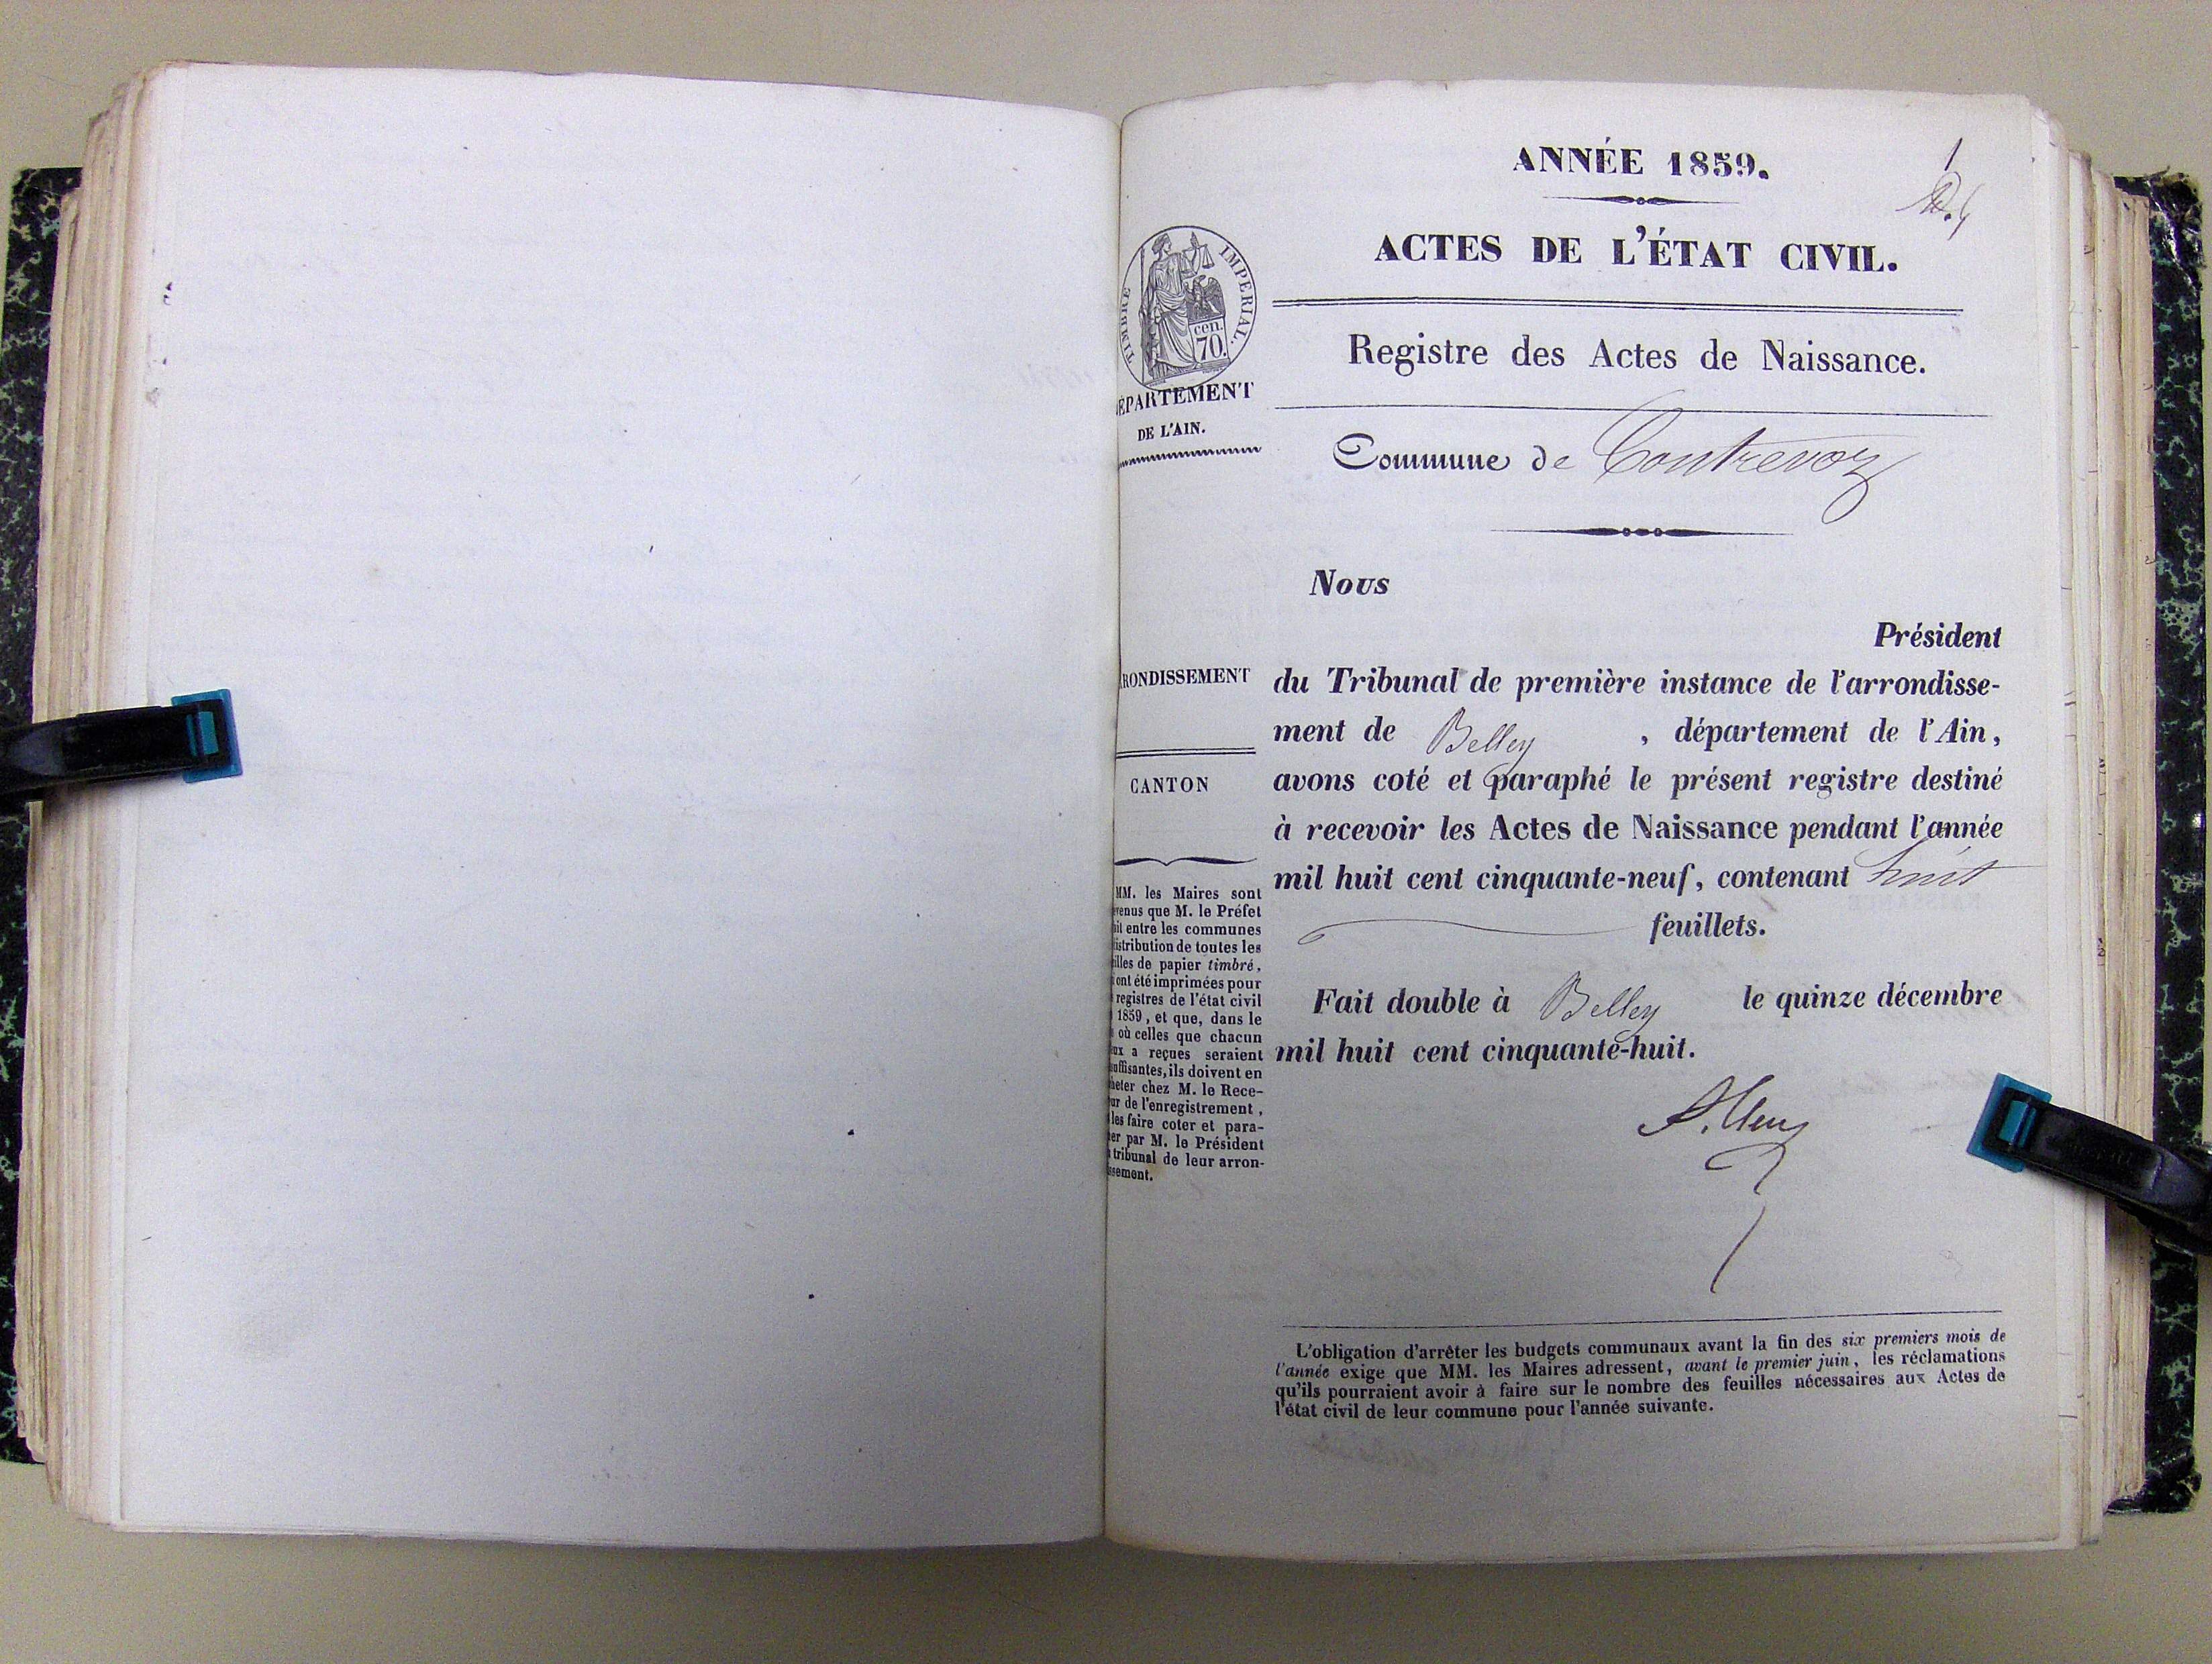 1
ANNÉE 1859.
ACTES DE L'ÉTAT CIVIL.
TIMBRE IMPERIAL.
cen.
70.
DÉPARTEMENT
DE L'AIN.
Registre des Actes de Naissance.
Commune de Contrevoz
Nous
Président
du Tribunal de première instance de l'arrondisse-
ment de Belley , département de l'Ain,
avons coté et paraphé le présent registre destiné
à recevoir les Actes de Naissance pendant l'année
mil huit cent cinquante-neuf, contenant huit
feuillets.
Fait double à Belley le quinze décembre
mil huit cent cinquante-huit.
RONDISSEMENT
CANTON
MM. les Maires sont
venus que M. le Préfet
it entre les communes
istribution de toutes les
illes de papier timbré,
ont été imprimées pour
registres de l'état civil
1859, et que, dans le
où celles que chacun
ux a reçues seraient
uffisantes, ils doivent en
heter chez M. le Rece-
ur de l'enregistrement,
les faire coter et para-
er par M. le Président
tribunal de leur arron-
ssement.
L'obligation d'arrêter les budgets communaux avant la fin des six premiers mois de
l'année exige que MM. les Maires adressent, avant le premier juin, les réclamations
qu'ils pourraient avoir à faire sur le nombre des feuilles nécessaires aux Actes de
l'état civil de leur commune pour l'année suivante.